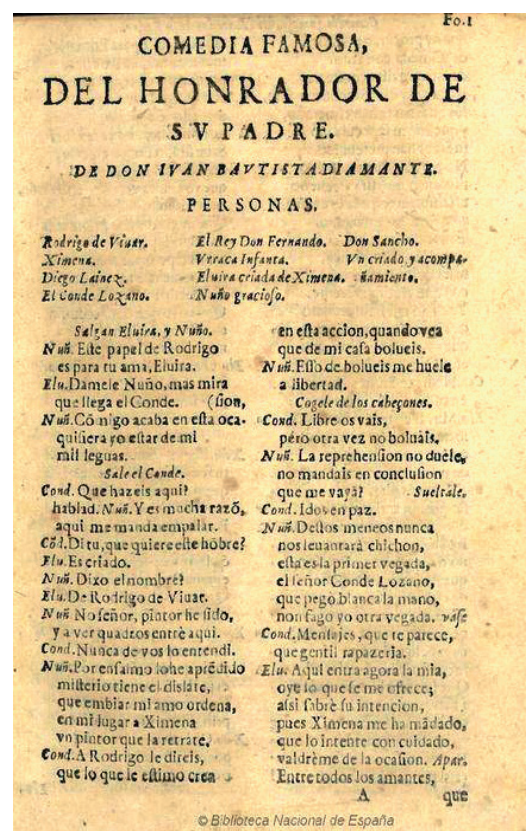 Fo.1
COMEDIA FAMOSA,
DEL HONRADOR DE
SV PADRE.
DE DON IVAN BAVTISTA DIAMANTE.
PERSONAS.
Rodrigo de Viuar. El Rey Don Fernando. Don Sancho.
Ximena. Vrraca Infanta. Vn criado y acompa-
Diego Lainez. Eluira criada de Ximena. ñamiento.
El Conde Lozano. Nuño gracioſo.
Salgan Eluira, y Nuño.
Nuñ. Eſte papel de Rodrigo
es para tu ama, Eluira.
Elu. Damele Nuño, mas mira
que llega el Conde. (ſion,
Nuñ. Cõmigo acaba en eſta oca-
quiſiera yo eſtar de mi
mil leguas.
Sale el Conde.
Cond. Que hazeis aqui?
hablad. Nuñ. Y es mucha razõ,
aqui me manda empalar.
Cõd. Di tu, que quiere eſte hõbre?
Elu. Es criado.
Nuñ. Dixo el nombre?
Elu. De Rodrigo de Viuar.
Nuñ. No ſeñor, pintor he ſido,
y a ver quadros entrè aqui.
Cond. Nunca de vos lo entendi.
Nuñ. Por enſaimo lo he aprẽdido
miſterio tiene el diſlate,
que embiar mi amo ordena,
en mi lugar a Ximena
vn pintor que la retrate.
Cond. A Rodrigo le direis,
que lo que le eſtimo crea
en eſta accion, quando vea
que de mi caſa bolueis.
Nuñ. Eſſo de bolueis me huele
a libertad.
Cogele de los cabeçones.
Cond. Libre os vais,
pero otra vez no boluais.
Nuñ. La reprehenſion no duele,
no mandais en concluſion
que me vaya? Sueltale.
Cond. Idos en paz.
Nuñ. Deſtos meneos nunca
nos leuantarà chichon,
eſta es la primer vegada,
el ſeñor Conde Lozano,
que pegò blanca la mano,
non fago yo otra vegada. vaſe
Cond. Menſajes, que te parece,
que gentil rapazeria.
Elu. Aqui entra agora la mia,
oye lo que ſe me ofrece;
aſsi ſabrè ſu intencion,
pues Ximena me ha mãdado,
que lo intente con cuidado,
valdrème de la ocaſion. Apar.
Entre todos los amantes,
A que
© Biblioteca Nacional de España